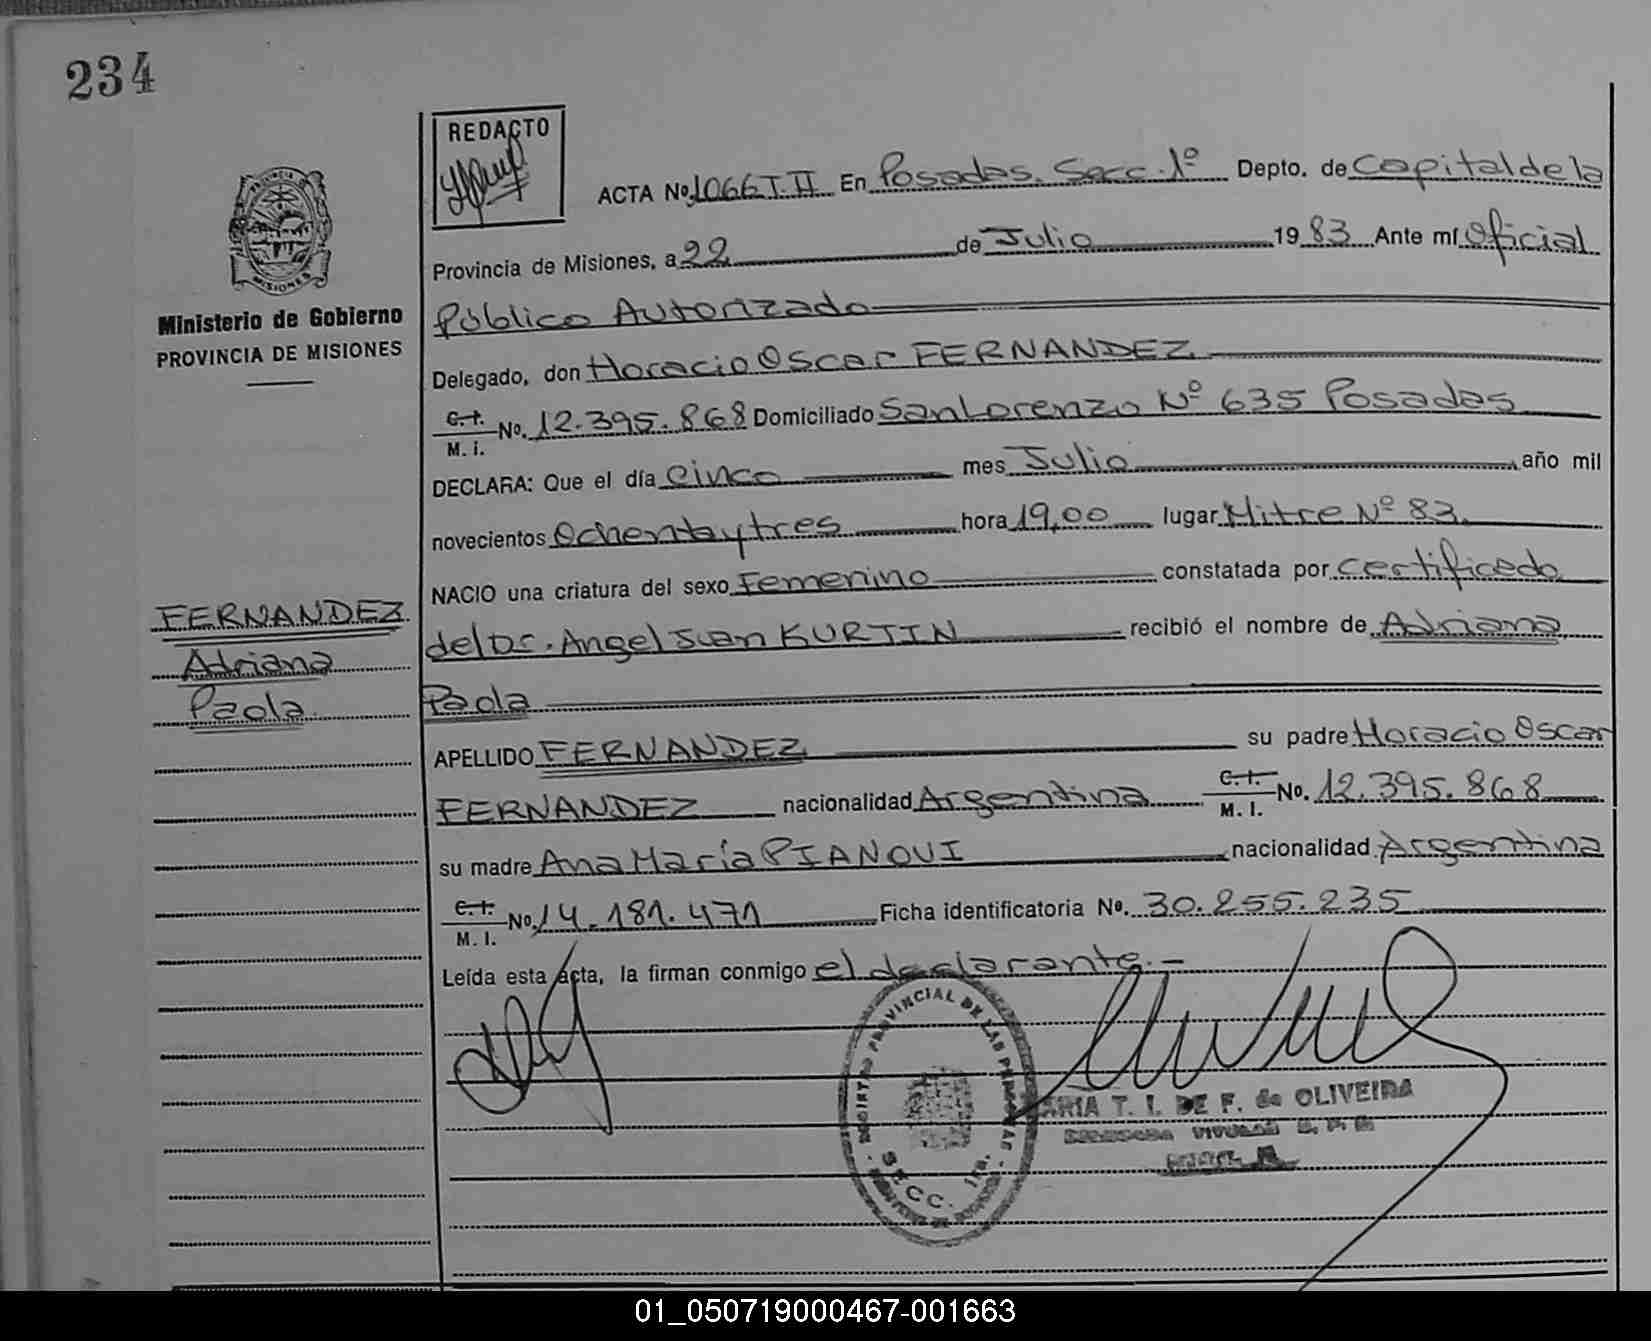 234
REDACTO
ACTA No. 1066 T II En Posadas. Secc. 1º Depto. de Capital de la
PROVINCIA DE
MISIONES
Provincia de Misiones, a 22 de Julio 1983 Ante mí Oficial
Ministerio de Gobierno
PROVINCIA DE MISIONES
Público Autorizado
Delegado, don Horacio Oscar FERNANDEZ
C.I. M.I. No. 12.395.868 Domiciliado San Lorenzo Nº 635 Posadas
DECLARA: Que el día cinco mes Julio año mil
novecientos Ochenta y tres hora 19,00 lugar Mitre Nº 83.
NACIO una criatura del sexo Femenino constatada por certificado
FERNANDEZ
Adriana
Paola
del Dr. Angel Juan KURTIN recibió el nombre de Adriana
Paola
APELLIDO FERNANDEZ su padre Horacio Oscar
FERNANDEZ nacionalidad Argentina C.I. M.I. No. 12.395.868
su madre Ana María PIANOVI nacionalidad Argentina
C.I. M.I. No. 14.181.471 Ficha identificatoria No. 30.255.235
Leída esta acta, la firman conmigo el declarante.-
REGISTRO PROVINCIAL DE LAS PERSONAS
SECC. 1ra.
MARIA T. I. DE F. de OLIVEIRA
01_050719000467-001663